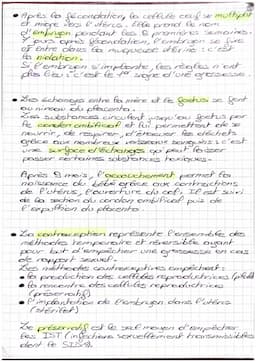 • Après la fécondation, la cellule œuf se multiplie
et migre vers l'utérus. Elle prend le nom
d'embryon pendant les 8 premières semaines.
7 jours après fécondation, l'embryon se fixe
et entre dans la muqueuse utérine : c'est
la nidation.
Si l'embryon s'implante, les règles n'ont
pas lieu : c'est le 1er signe d'une grossesse.
• Les échanges entre la mère et le foetus se font
au niveau du placenta.
Les substances circulent jusqu'au foetus par
le cordon ombilical et lui permettent de se
nourrir, de respirer, d'évacuer les déchets
grâce aux nombreux vaisseaux sanguins : c'est
une surface d'échanges qui peut laisser
passer certaines substances toxiques.
Après 9 mois, l'accouchement permet la
naissance du bébé grâce aux contractions
de l'utérus, l'ouverture du col. Il est suivi
de la section du cordon ombilical puis de
l'expulsion du placenta.
• La contraception représente l'ensemble des
méthodes temporaire et réversible ayant
pour but d'empêcher une grossesse en cas
de rapport sexuel.
Les méthodes contraceptives empêchent :
• la production des cellules reproductrices (pilule)
• la rencontre des cellules reproductrices
(préservatif)
• l'implantation de l'embryon dans l'utérus
(stérilet)
Le préservatif est le seul moyen d'empêcher
les IST (infections sexuellement transmissibles)
dont le SIDA.